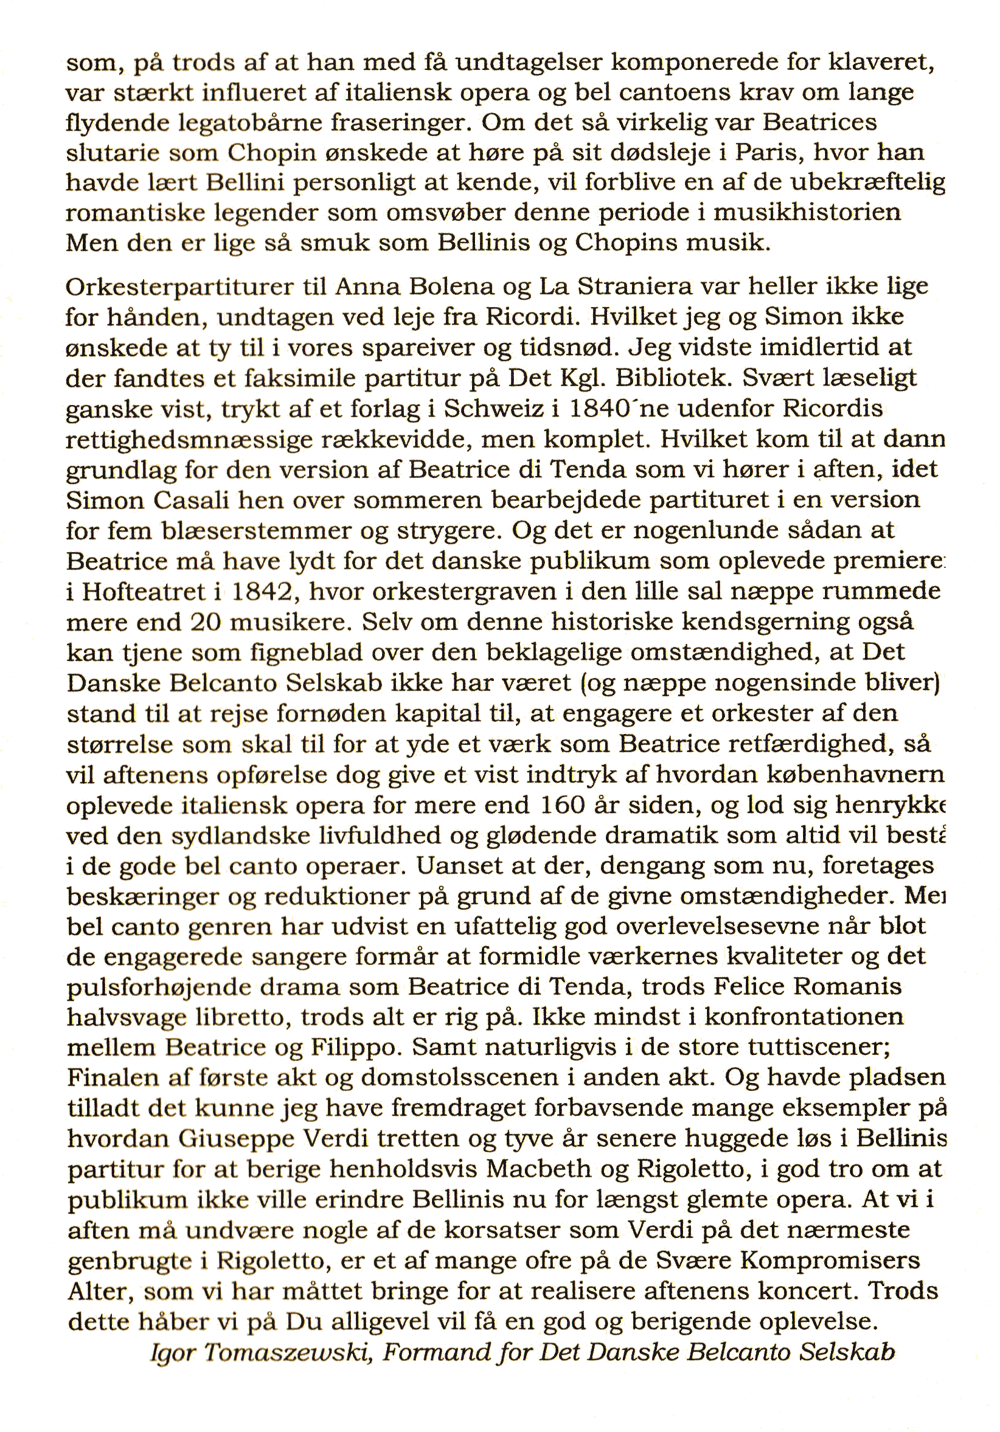 som, på trods af at han med få undtagelser komponerede for klaveret,
var stærkt influeret af italiensk opera og bel cantoens krav om lange
flydende legatobårne fraseringer. Om det så virkelig var Beatrices
slutarie som Chopin ønskede at høre på sit dødsleje i Paris, hvor han
havde lært Bellini personligt at kende, vil forblive en af de ubekræftelig
romantiske legender som omsvøber denne periode i musikhistorien
Men den er lige så smuk som Bellinis og Chopins musik.
Orkesterpartiturer til Anna Bolena og La Straniera var heller ikke lige
for hånden, undtagen ved leje fra Ricordi. Hvilket jeg og Simon ikke
ønskede at ty til i vores spareiver og tidsnød. Jeg vidste imidlertid at
der fandtes et faksimile partitur på Det Kgl. Bibliotek. Svært læseligt
ganske vist, trykt af et forlag i Schweiz i 1840´ne udenfor Ricordis
rettighedsmnæssige rækkevidde, men komplet. Hvilket kom til at dann
grundlag for den version af Beatrice di Tenda som vi hører i aften, idet
Simon Casali hen over sommeren bearbejdede partituret i en version
for fem blæserstemmer og strygere. Og det er nogenlunde sådan at
Beatrice må have lydt for det danske publikum som oplevede premiere
i Hofteatret i 1842, hvor orkestergraven i den lille sal næppe rummede
mere end 20 musikere. Selv om denne historiske kendsgerning også
kan tjene som figneblad over den beklagelige omstændighed, at Det
Danske Belcanto Selskab ikke har været (og næppe nogensinde bliver)
stand til at rejse fornøden kapital til, at engagere et orkester af den
størrelse som skal til for at yde et værk som Beatrice retfærdighed, så
vil aftenens opførelse dog give et vist indtryk af hvordan københavnern
oplevede italiensk opera for mere end 160 år siden, og lod sig henrykke
ved den sydlandske livfuldhed og glødende dramatik som altid vil bestå
i de gode bel canto operaer. Uanset at der, dengang som nu, foretages
beskæringer og reduktioner på grund af de givne omstændigheder. Men
bel canto genren har udvist en ufattelig god overlevelsesevne når blot
de engagerede sangere formår at formidle værkernes kvaliteter og det
pulsforhøjende drama som Beatrice di Tenda, trods Felice Romanis
halvsvage libretto, trods alt er rig på. Ikke mindst i konfrontationen
mellem Beatrice og Filippo. Samt naturligvis i de store tuttiscener;
Finalen af første akt og domstolsscenen i anden akt. Og havde pladsen
tilladt det kunne jeg have fremdraget forbavsende mange eksempler på
hvordan Giuseppe Verdi tretten og tyve år senere huggede løs i Bellinis
partitur for at berige henholdsvis Macbeth og Rigoletto, i god tro om at
publikum ikke ville erindre Bellinis nu for længst glemte opera. At vi i
aften må undvære nogle af de korsatser som Verdi på det nærmeste
genbrugte i Rigoletto, er et af mange ofre på de Svære Kompromisers
Alter, som vi har måttet bringe for at realisere aftenens koncert. Trods
dette håber vi på Du alligevel vil få en god og berigende oplevelse.
Igor Tomaszewski, Formand for Det Danske Belcanto Selskab